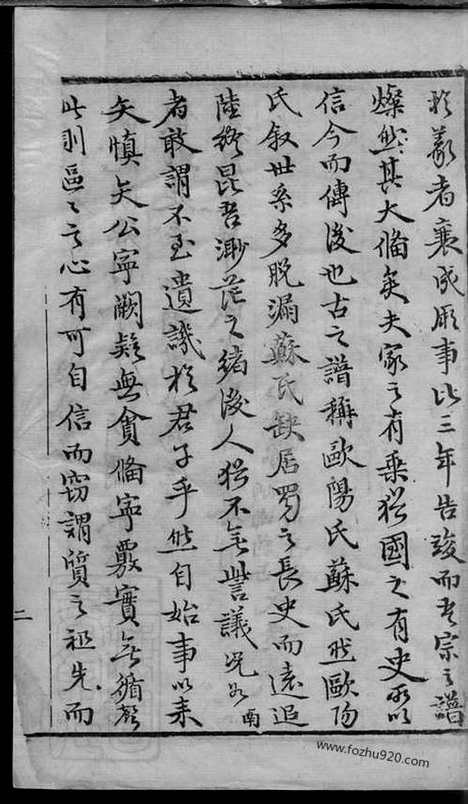 於義者襄成厥事比三年告竣而吾宗之譜
燦然其大備矣夫家之有乘猶國之有史所以
信今而傳後也古之譜稱歐陽氏蘇氏然歐陽
氏叙世系多脱漏蘇氏缺居蜀之長史而遠追
陸終昆吾渺茫之緒後人猶不無訾議况如南
者敢謂不至遺譏於君子乎然自始事以来
矢慎矢公寧闕疑無貪備寧覈實無循聲
此則區々之心有可自信而窃謂質之祖先而
二
www.fozhu920.com